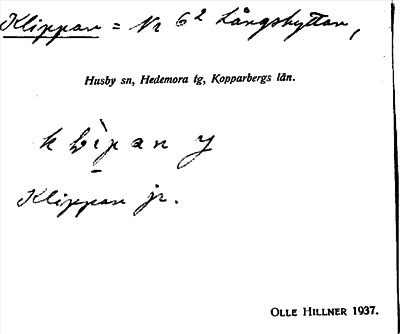 Klippan = Nr 6² Långshyttan,
Husby sn, Hedemora tg, Kopparbergs län.
Klippan jr.
OLLE HILLNER 1937.